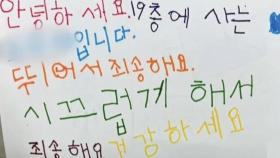 안녕하 세요. 19층에 사는
입니다.
뚜ㅣ어서 죄송해요.
시끄럽게 해서
죄송해요 건강하세요